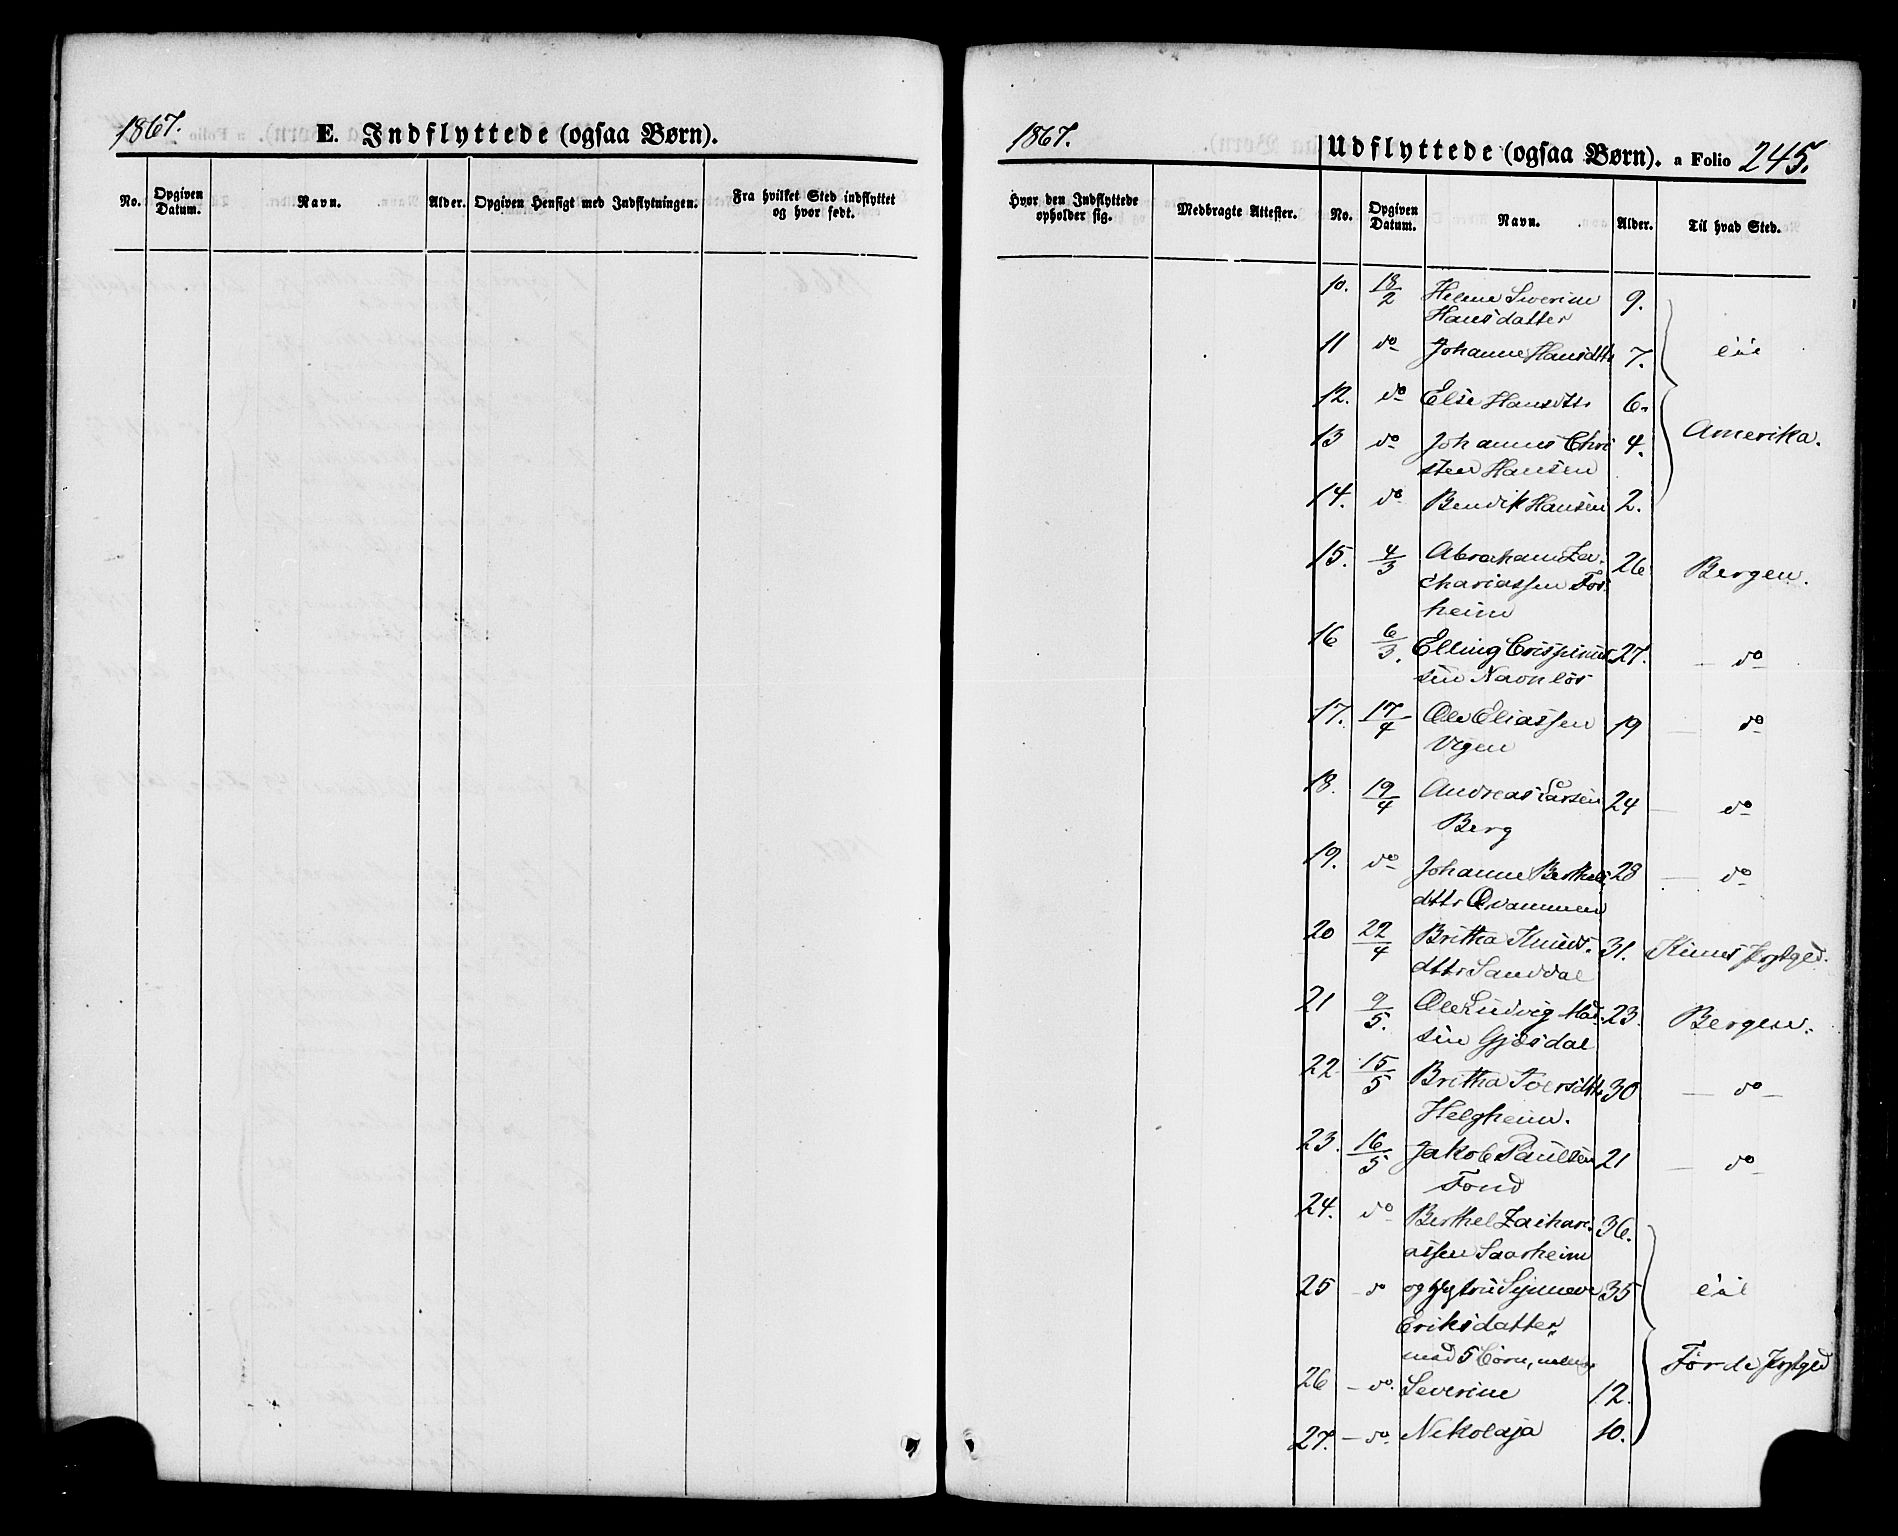 1867.
E. Indflyttede (ogsaa Børn).
No.
Opgiven Datum.
Navn.
Alder.
Opgiven Hensigt med Indflytningen.
Fra hvilket Sted indflyttet og hvor født.
1867.
Udflyttede (ogsaa Børn). a Folio 245.
Hvor den Indflyttede opholder sig.
Medbragte Attester.
No.
Opgiven Datum.
Navn.
Alder.
Til hvad Sted.
10. 18/2 Helene Severine 9.
Hansdatter
11 do Johanne Hansdttr 7. til
12. do Else Hansdttr 6.
13 do Johannes Chri 4. Amerika.
sten Hansen
14. do Bendik Hansen 2.
15. 4/3 Abraham Za- 26 Bergen.
chariassen Fos
heim
16 6/3. Elling Crispinus 27. — do
sen Navnløs
17. 17/4 Ole Eliassen 19 — do
Vigen
18. 19/4 Andreas Larsen 24 — do
Berg
19. do Johanne Berthels 28 — do
dttr Qvammen
20 22/4 Britha Knuds- 31. Kinns Prstgld.
dttr Sanddal
21 9/5. Ole Ludvig Mad- 23. Bergen.
sen Gjesdal
22 15/5 Britha Iversdttr 30 — do —
Helgheim.
23. 16/5 Jakob Paulsen 21 — do
Fond
24. do Berthel Zachari- 36.
assen Saarheim
25 — do og Hustru Synneve 35 til
Eriksdatter
med 5 Børn, Førde Prstgld
26 — do. Severine 12.
27. — do. Nikolaja 10.